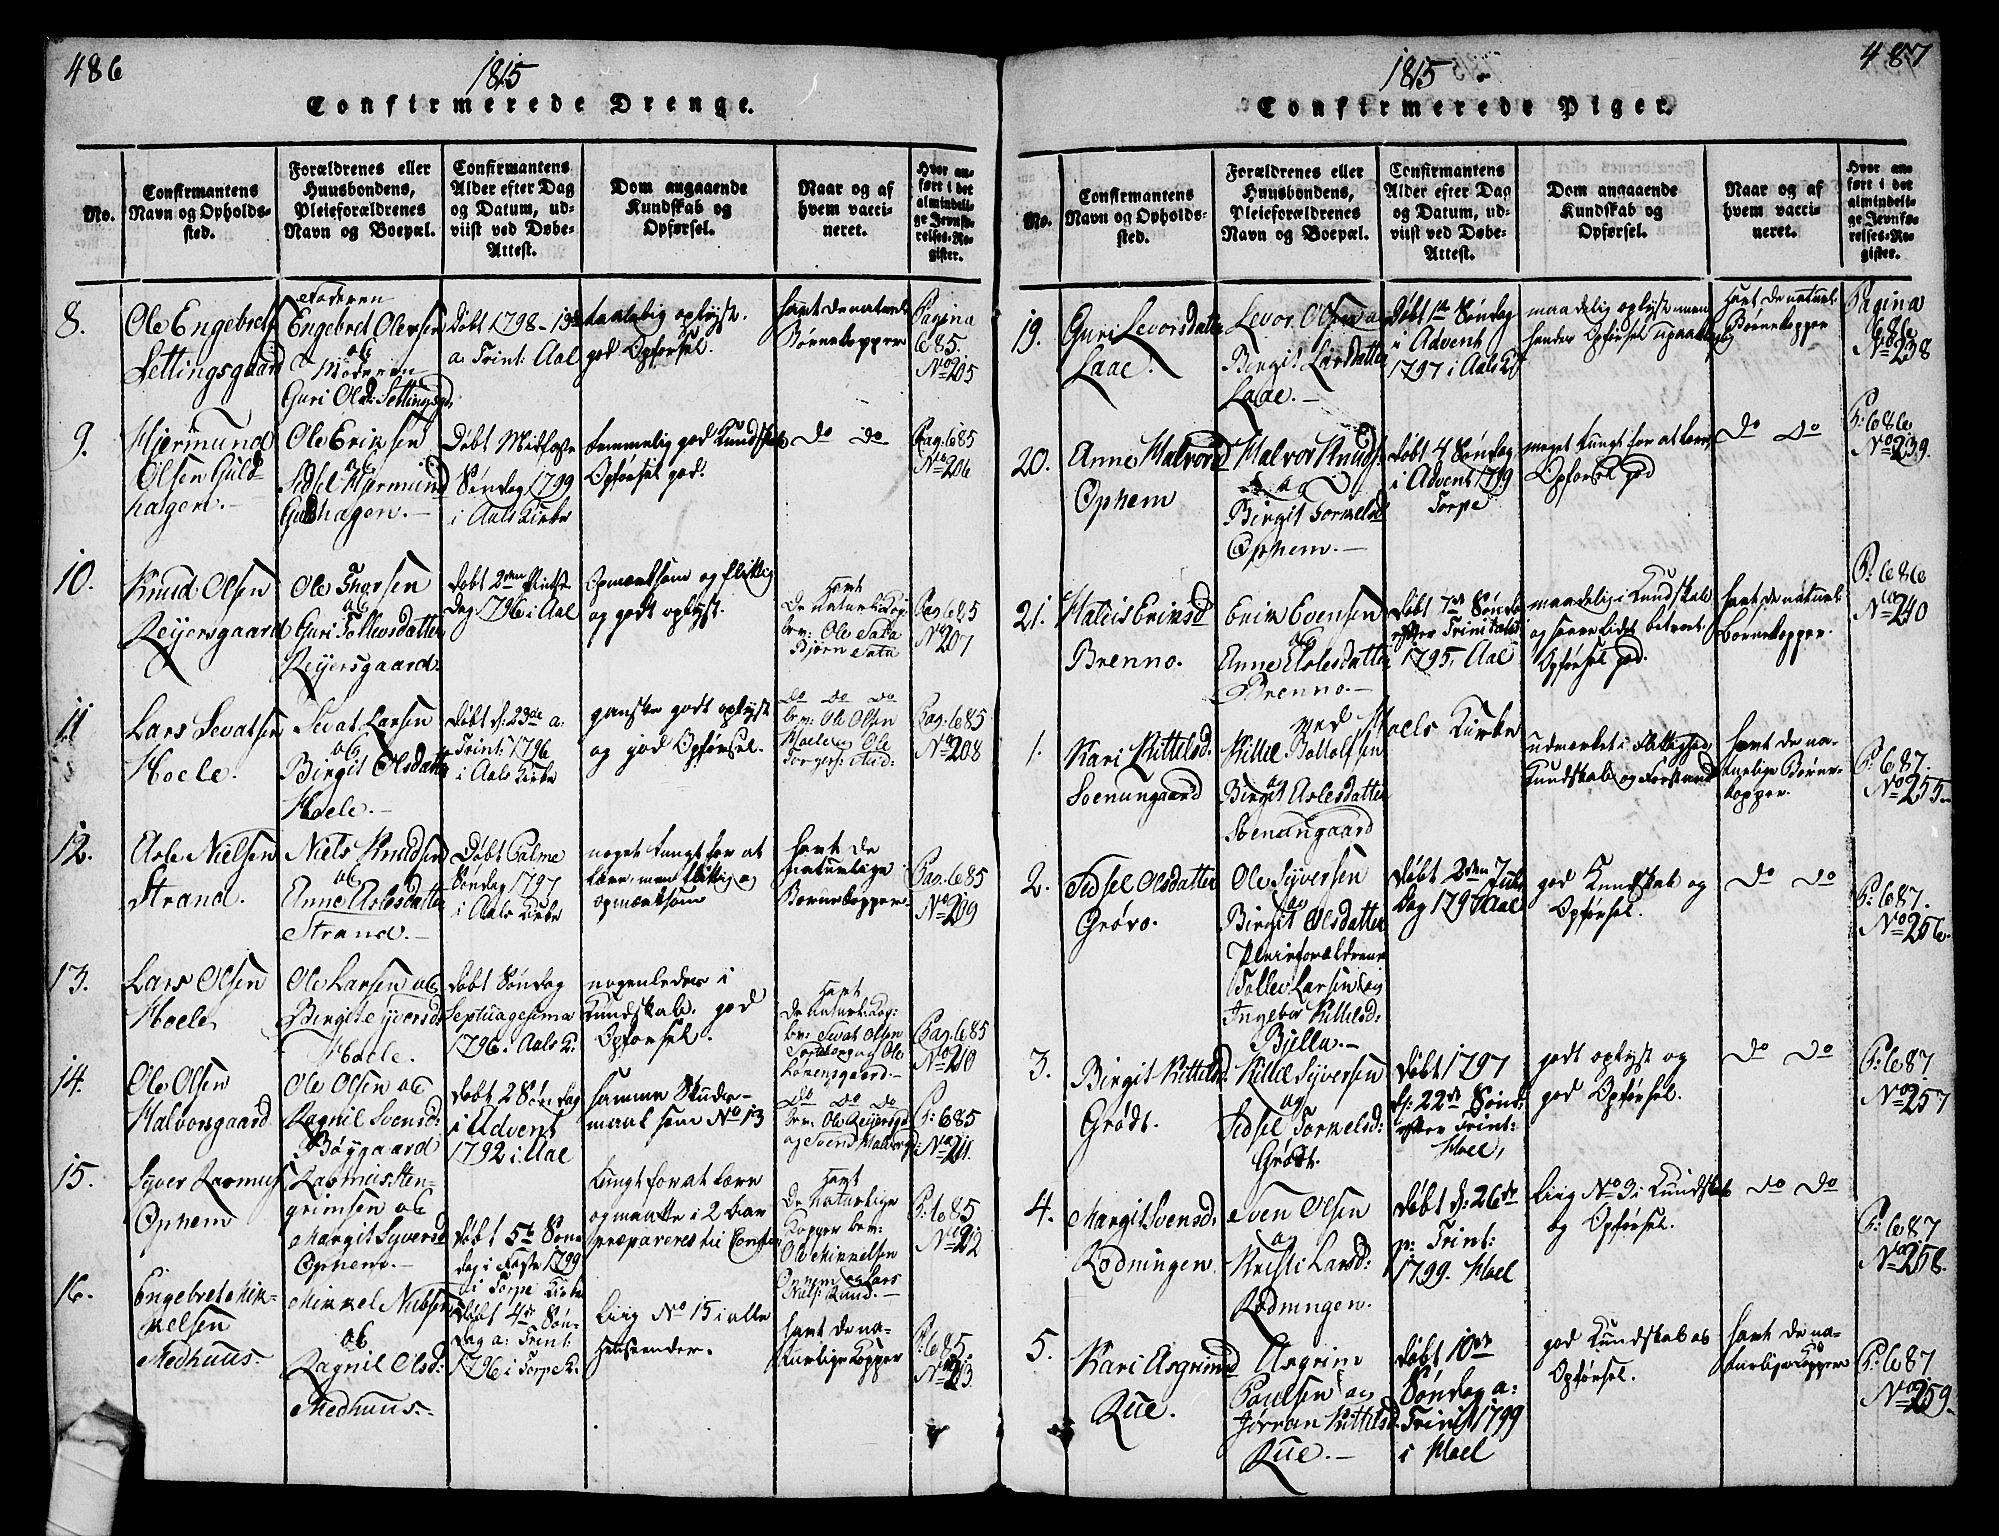 486
1815
Confirmerede Drenge.
No.
Confirmantens
Navn og Opholds-
sted.
Forældrenes eller
Huusbondens,
Pleieforældrenes
Navn og Boepæl.
Confirmantens
Alder efter Dag
og Datum, ud-
viist ved Døbe-
Attest.
Dom angaaende
Kundskab og
Opførsel.
Naar og af
hvem vacci-
neret.
Hvor an-
ført i det
almindeli-
ge Jevnfø-
relses-Re-
gister.
8.
Ole Engebrets
Settingsgaard
Faderen
Engebret Olersen
og
Moderen
Guri Olsd: Settingsgd
Døbt 1798 - 13de
a: Trint: Aal
taalelig oplyst.
god Opførsel.
havt de naturl:
Børnekopper
Pagina
685
No 205
9.
Hjermund
Olsen Guld-
hagen.-
Ole Eriksen
og
Sidsel Hjermund
Guldhagen.-
Døbt Midfaste
Søndag 1799
i Aals Kirke
temmelig god Kundskab
Opførsel god.
do do
Pag: 685
No 206
10.
Knud Olsen
Reijersgaard
Ole Thorsen
og
Guri Tollevsdatter
Reijersgaard.
Døbt 2den Pintse
Dag 1796 i Aal
Opmærksom og flittig
og godt oplyst.
havt
De naturl: Kop:
bev: Ole Sata
Bjørn Sata
Pag: 685
No 207
11
Lars Sevatsen
Hoele.
Sevat Larsen
og
Birgit Olsdatter
Hoele.-
Døbt d: 23de a:
Trint: 1796
i Aals Kirke
ganske godt oplyst
og god Opførsel.
do do do
bev: Ole Olsen
Pag: 685
No 208
12.
Asle Nielsen
Strand.
Niels Knudsen
og
Anne Aslesdatter
Strand.-
Døbt Palme
Søndag 1797
i Aals Kirke
noget tungt for at
lære, men flittig og
opmærksom
havt de
naturlige
Børnekopper
Pag: 685
No 209
13.
Lars Olsen
Hoele
Ole Larsen og
Birgit Syversd:
Hoele.
Døbt Søndag
Septuagesima
1796. Aals K:
nogenledes i
Kundskab. god
Opførsel.
havt
De naturl: Kop:
bev: Sevat Olsen
Pag: 685
No 210
14.
Ole Olsen
Halvorsgaard
Ole Olsen og
Ragnil Svensd:
Bøygaard
Døbt 2 Søndag
i Advent
1792 i Aal
samme Skuds-
maal som No 13
do do do
bev: Ole Reijersgd
og Svend Halvorsgd:
P: 685
No 211.
15.
Syver Rasmus
Ophem
Rasmus Sten-
grimsen og
Margit Syversd
Ophem.-
Døbt 5te Søn-
dag i Faste 1799
i Torpe Kirke
tungt for at lære
og maatte i 2 Aar
præpareres til Conf
havt
De naturlige
Kopper bev:
Ole Mikkelsen
Ophem og Lars
P: 685
No 212
16.
Engebret Mik-
kelsen
Medhuus.
Mikkel Nielsen
og
Ragnil Olsd:
Medhuus.-
Døbt 4de Søn-
dag a: Trint:
1796 i Torpe K:
liig No 15 i alle
Henseender.
havt de na-
turlige Kopper
P: 685.
No 213.
487
1815
Confirmerede Piger.
No.
Confirmantens
Navn og Opholds-
sted.
Forældrenes eller
Huusbondens,
Pleieforældrenes
Navn og Boepæl.
Confirmantens
Alder efter Dag
og Datum, ud-
viist ved Døbe-
Attest.
Dom angaaende
Kundskab og
Opførsel.
Naar og af
hvem vacci-
neret.
Hvor an-
ført i det
almindeli-
ge Jevnfø-
relses-Re-
gister.
19.
Guri Levorsdatter
Laae.
Levor Olsen og
Birgit Larsdatter
Laae.-
Døbt 1te Søndag
i Advent
1797 i Aals K:
maadelig oplyst men
hendes Opførsel upaaklagelig
havt de naturl:
Børnekopper
Pagina
686
No 238
20.
Anne Halvorsd
Ophem
Halvor Knuds:
og
Birgit Torkelsd
Ophem.-
Døbt 4 Søndag
i Advent 1799
Torpe
meget tungt for at lære
Opførsel god
do do
P: 686
No 239.
21.
Haleis Eriksd
Brenno.
Erik Evensen
og
Anne Aslesdatter
Brenno.-
Døbt 7de Sønd:
efter Trinitatis
1795, Aal
maadelig i Kundskab
og favre lidet betroet
Opførsel god.
havt de naturl:
Børnekopper.
P: 686
No 240
ved Hoels Kirke
1.
Kari Kittelsd:
Soenungaard
Kittel Bottolfsen
og
Birgit Aslesdatter
Soenungaard
udmærket i Flittighed,
Kundskab og Forstand
havt de na-
turlige Børne-
kopper.
P: 687.
No 255.
2.
Sidsel Olsdatter
Grøvo.
Ole Syversen
og
Birgit Olsdatter
Pleieforældrene
Tollev Larsen og
Ingebor Kittelsd:
Bjella.-
Døbt 2den Jule
Dag 1797 Aal
god Kundskab og
Opførsel.
do do
P: 687.
No 256.
3.
Birgit Kittelsd:
Grødt.
Kittel Syversen
og
Sidsel Torkelsd:
Grødt.
Døbt 1797
d: 22de Sønd:
efter Trint:
Hoel,
godt oplyst og
god Opførsel.
do do
P: 687
No 257
4.
Margit Svensd:
Rodningen
Sven Olsen
og
Kristi Larsd:
Rodningen.
Døbt d: 26de
p: Trint:
1799. Hoel
liig No 3 i Kundskab
og Opførsel.
do do
P: 687
No 258.
5.
Kari Asgrimsd
Rue.
Asgrim
Paulsen og
Jørran Kittelsd
Rue.-
Døbt 10de
Søndag a:
Trint 1799
i Hoel
god Kundskab og
Opførsel.
havt de na-
turlige Kopper
P: 687
No 259.